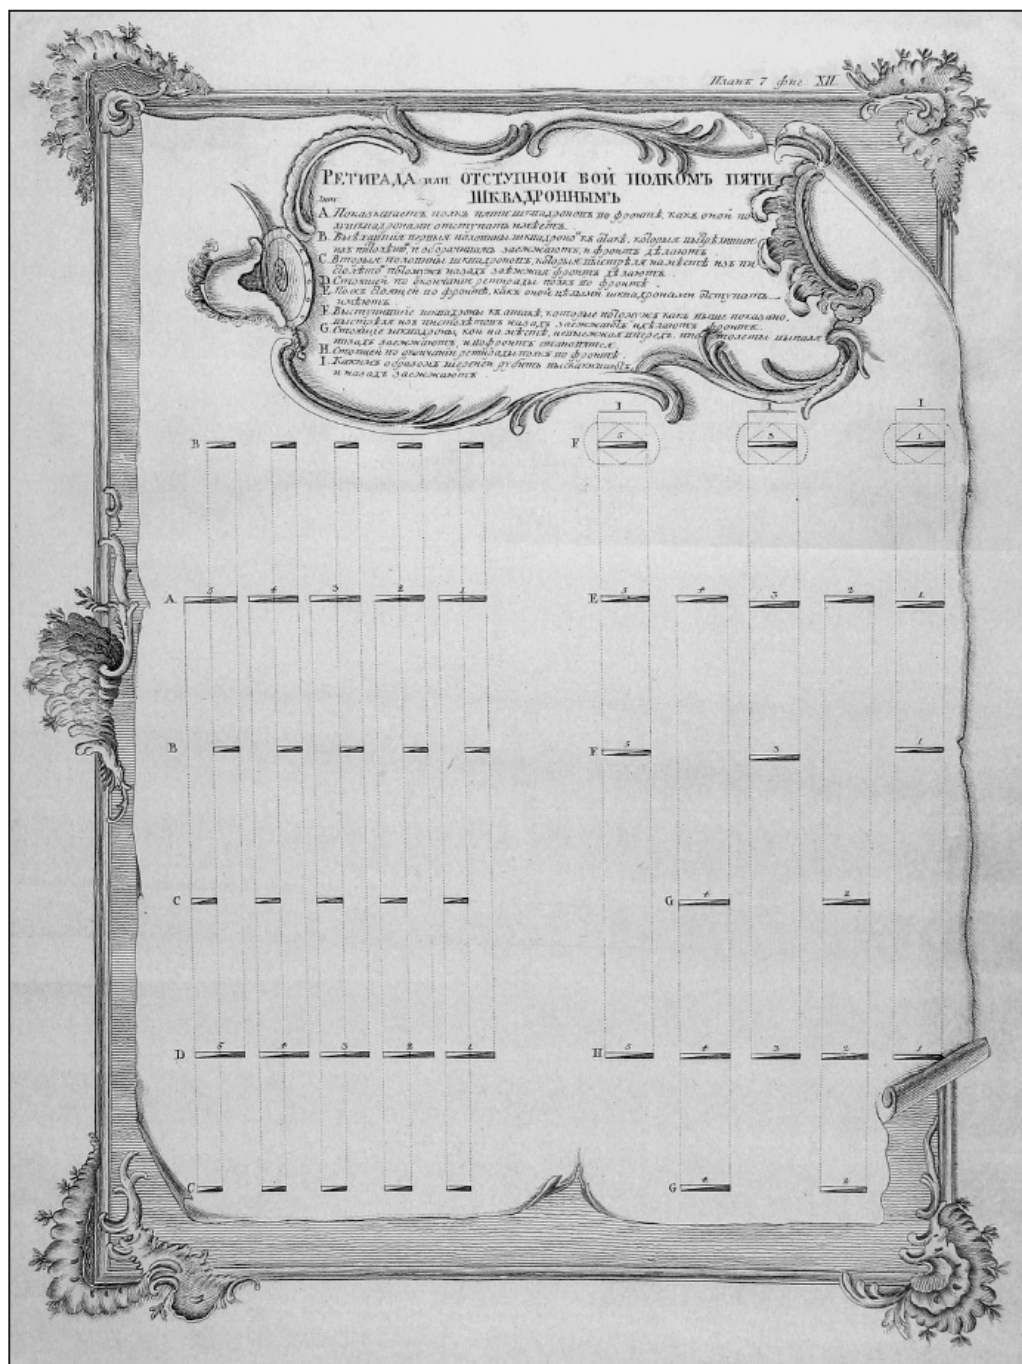 Планъ 7 фиг XII.
РЕТИРАДА или ОТСТУПНОИ БОЙ ПОЛКОМЪ ПЯТИ
ШКВАДРОННЫМЪ
A. Показываетъ полкъ пяти шквадроновъ по фронтѣ, какъ оной по
лушквадронами отступать имѣетъ.
B. Выѣхавшия первыя половины шквадроновъ къ атакѣ, которыя выстрѣливши
изъ пистолѣтовъ и оборачиваясь заезжаютъ, и фронтъ дѣлаютъ.
C. Вторыя половины шквадроновъ, которыя выстреля на мѣстѣ изъ пи
столѣтовъ потомужъ назадъ заезжая фронтъ дѣлаютъ.
D. Стоящей по окончании ретирады полкъ по фронтѣ.
E. Полкъ стоящей по фронтѣ, какъ оной цѣлыми шквадронами отступать
имѣютъ.
F. Выступившие шквадроны къ атакѣ, которые потомужъ какъ выше показано,
выстреля изъ пистолѣтовъ назадъ заезжаютъ и дѣлаютъ фронтъ.
G. Стоящие шквадроны, кои на мѣстѣ, невыезжая впередъ, пистолеты выпаля
назадъ заезжаютъ, и во фронтъ становятся.
H. Стоящей по окончании ретирады полкъ по фронтѣ.
I. Какимъ образомъ шеренги рубить выскакиваютъ,
и назадъ заезжаютъ.
I I I
B F 5 3 1
A 5 4 3 2 1 E 5 4 3 2 1
B F 5 3 1
C G 4 2
D 5 4 3 2 1 H 5 4 3 2 1
C G 4 2